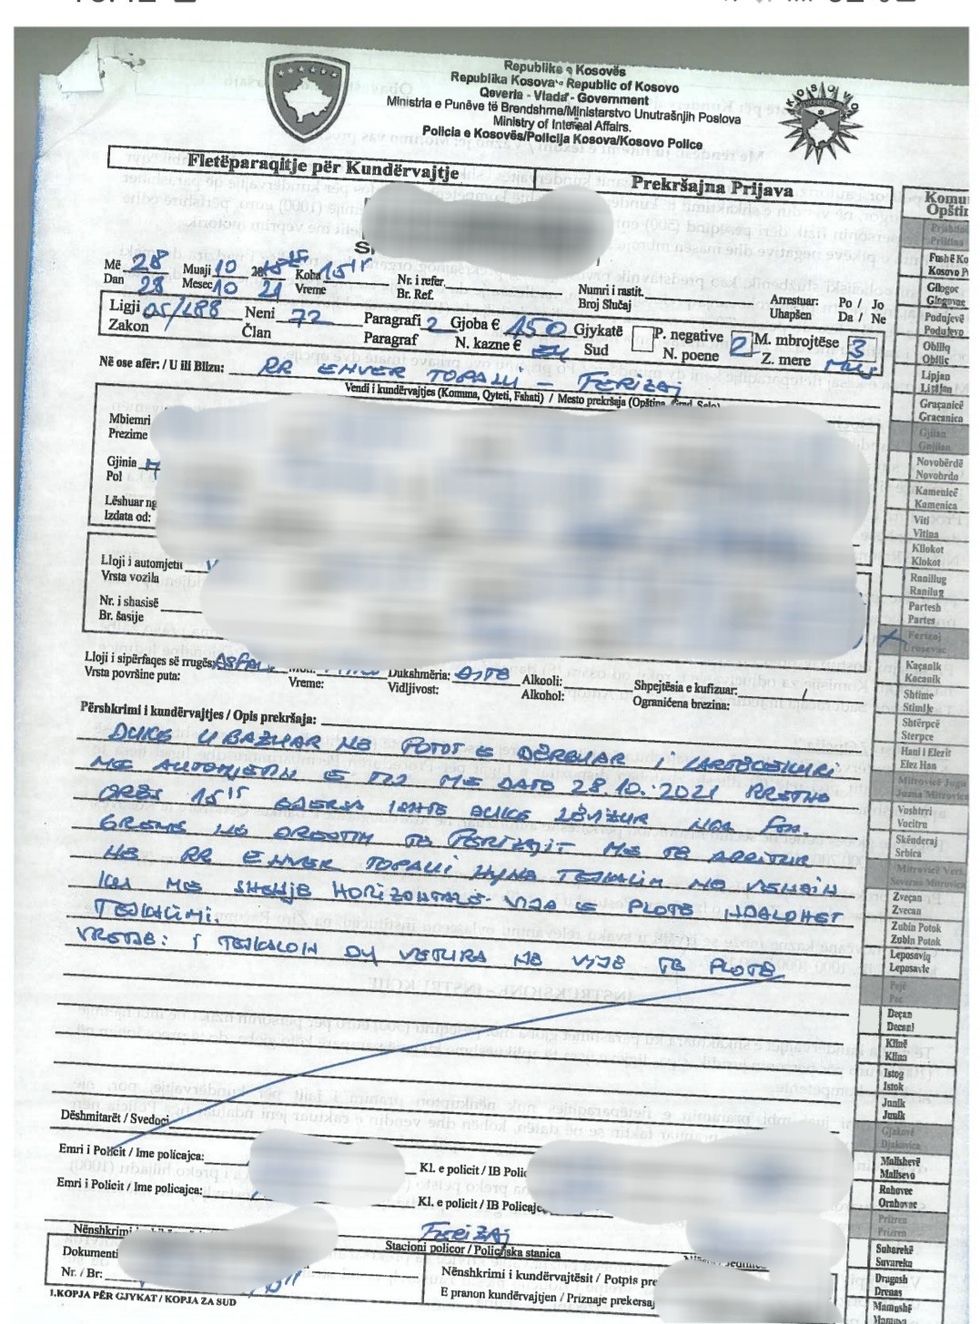 Republika e Kosovës
Republika Kosova - Republic of Kosovo
Qeveria - Vlada - Government
Ministria e Punëve të Brendshme/Ministarstvo Unutrašnjih Poslova
Ministry of Internal Affairs.
Policia e Kosovës/Policija Kosova/Kosovo Police
Fletëparaqitje për Kundërvajtje
Prekršajna Prijava
Më 28 Muaji 10 Koha 15 15 Nr. i refer. Numri i rastit. Arrestuar: Po / Jo
Dan 28 Mesec 10 21 Vreme Br. Ref. Broj Slučaj Uhapšen Da / Ne
Ligji 05/L88 Neni 72 Paragrafi 2 Gjoba € 150 Gjykatë P. negative 2 M. mbrojtëse 3
Zakon Član Paragraf N. kazne € Sud N. poene Z. mere
Në ose afër: / U ili Blizu: RR ENVER TOPALLI - FERIZAJ
Vendi i kundërvajtjes (Komuna, Qyteti, Fshati) / Mesto prekršaja (Opština, Grad, Selo)
Mbiemri
Prezime
Gjinia
Pol
Lëshuar ng
Izdata od:
Lloji i automjetit
Vrsta vozila
Nr. i shasisë
Br. šasije
Lloji i sipërfaqes së rrugës: Dukshmëria: Alkooli: Shpejtësia e kufizuar: /
Vrsta površine puta: Vreme: Vidljivost: Alkohol: Ograničena brezina:
Përshkrimi i kundërvajtjes / Opis prekršaja:
DUKE U BAZUAR NE FOTOT E DËRGUAR I LARTËCEKURI
ME AUTOMJETIN E TIJ ME DATE 28.10.2021 RRETH
ORËS 15 15 DUKE LËVIZUR NGA FSH.
GREME NE DREJTIM TE FERIZAJIT ME TE ARRITUR
NE RR ENVER TOPALLI TEJKALIM NE VENDIN
KU ME SHENJE HORIZONTALE - VIJA E PLOTE NDALOHET
TEJKALIMI.
VREJTJE: I TEJKALOIN DY VETURA NE VIJE TE PLOTË
Dëshmitarët / Svedoci
Emri i Policit / Ime policajca:
Kl. e policit / IB Polic
Emri i Policit / Ime policajca:
Kl. e policit / IB Policajc
FERIZAJ
Nënshkrimi
Stacioni policor / Policijska stanica
Dokumenti
Nr. / Br:
Nënshkrimi i kundërvajtësit / Potpis pre
E pranon kundërvajtjen / Priznaje prekersaj
1.KOPJA PËR GJYKAT / KOPJA ZA SUD
Komu
Opštin
Prishtin
Priština
Fushë Ko
Kosovo P
Gllogoc
Glogovac
Podujevë
Podujevo
Obiliq
Obilic
Lipjan
Lipljan
Graçanicë
Gracanica
Gjilan
Gnjilan
Novobërdë
Novobrdo
Kamenicë
Kamenica
Viti
Vitina
Kllokot
Klokot
Ranillug
Ranilug
Partesh
Partes
Ferizaj
Urosevac
Kaçanik
Kacanik
Shtime
Stimlje
Shtërpcë
Sterpce
Hani i Elezit
Elez Han
Mitrovicë Jugu
Juzna Mitrovica
Vushtrri
Vucitrn
Skënderaj
Srbica
Mitrovicë Veri.
Severna Mitrovica
Zveçan
Zvecan
Zubin Potok
Zubin Potok
Leposaviq
Leposavic
Pejë
Pec
Deçan
Decani
Klinë
Klina
Istog
Istok
Junik
Junik
Gjakovë
Djakovica
Malishevë
Malisevo
Rahovec
Orahovac
Prizren
Prizren
Suharekë
Suvareka
Dragash
Drenas
Mamushë